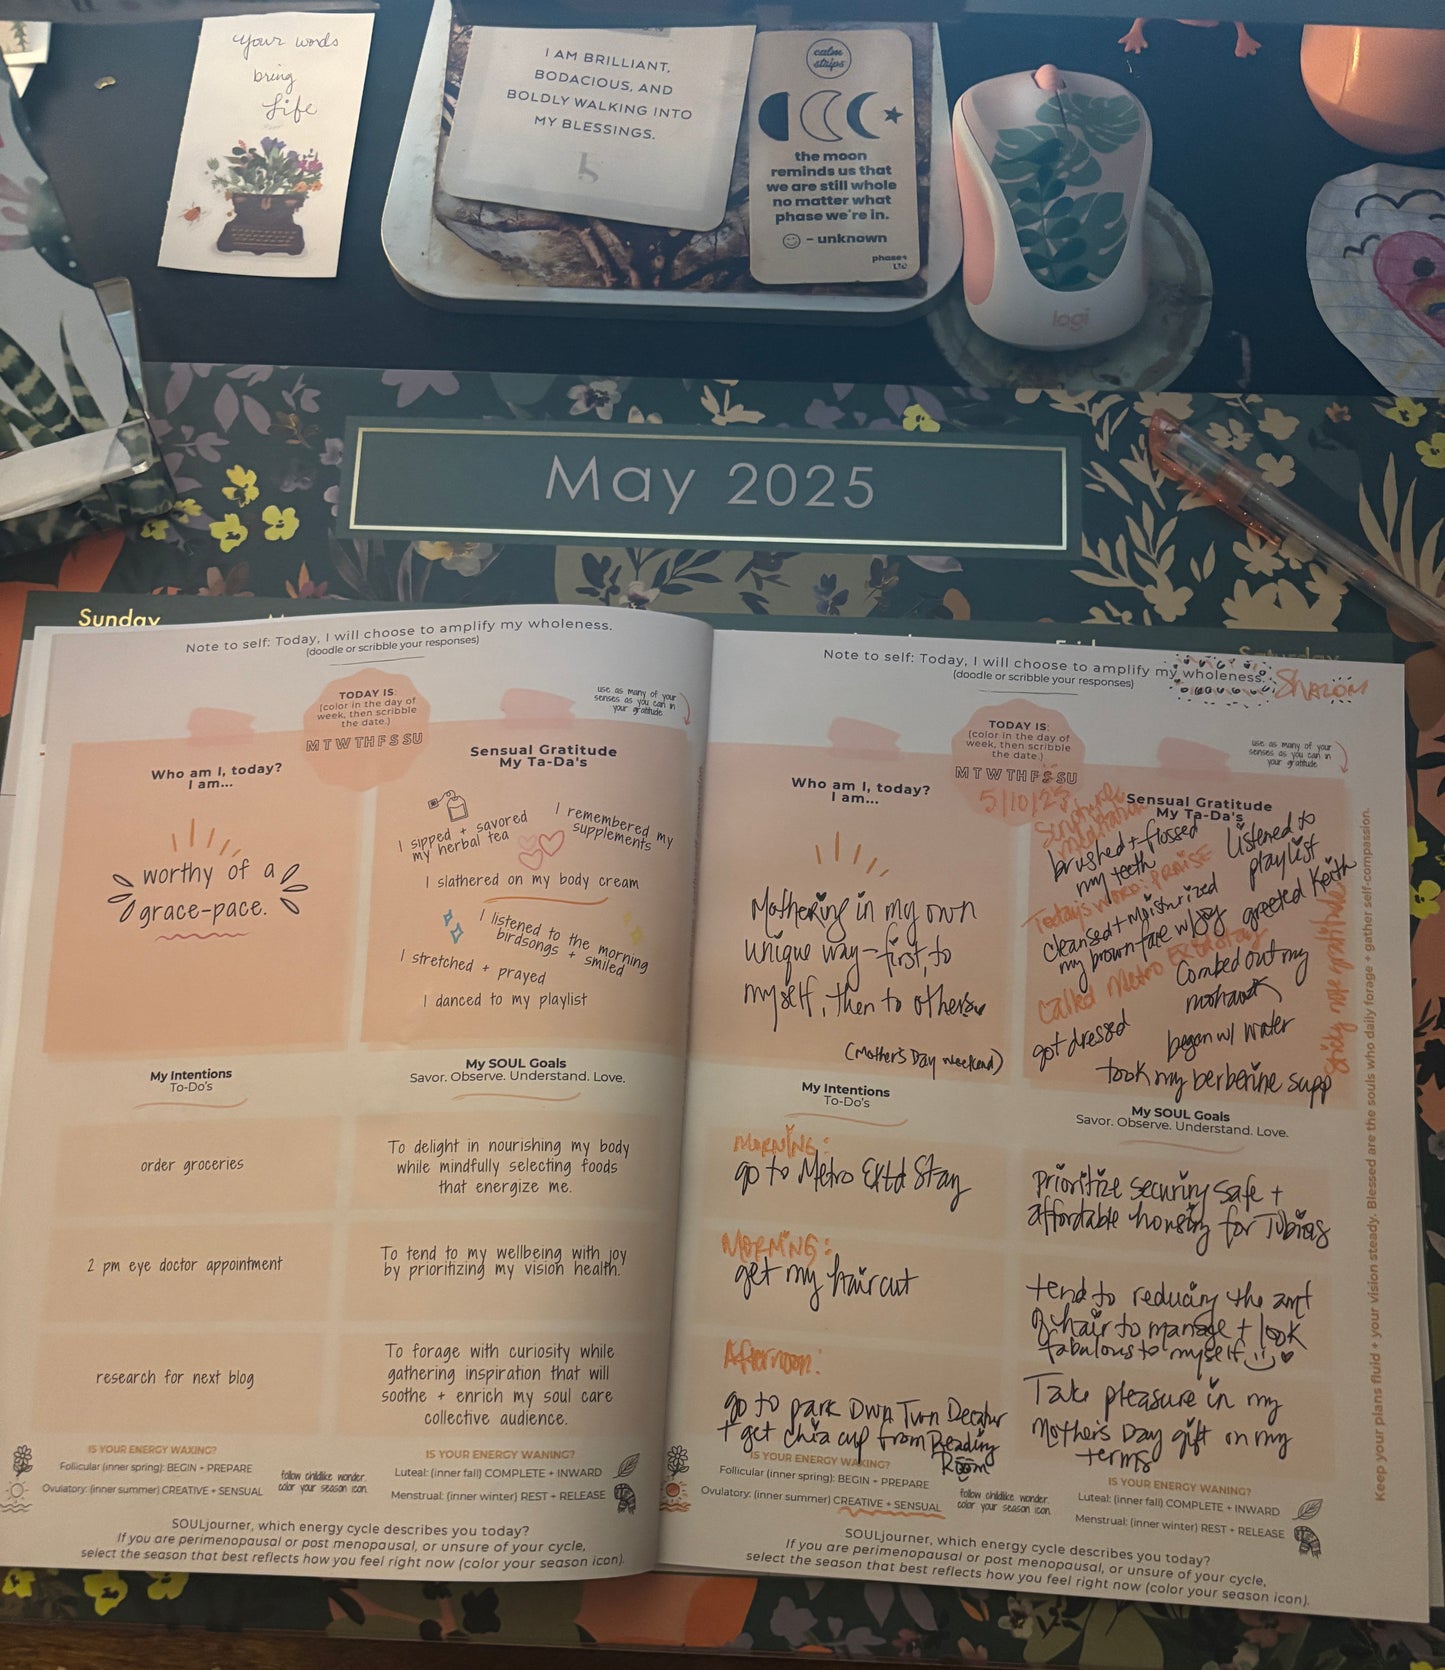 your words
bring
life
I AM BRILLIANT,
BODACIOUS, AND
BOLDLY WALKING INTO
MY BLESSINGS.
calm
strips
the moon
reminds us that
we are still whole
no matter what
phase we're in.
– unknown
phases
logi
May 2025
Sunday
Saturday
Note to self: Today, I will choose to amplify my wholeness.
(doodle or scribble your responses)
TODAY IS:
(color in the day of
week, then scribble
the date.)
M T W TH F S SU
use as many of your
senses as you can in
your gratitude
Who am I, today?
I am...
worthy of a
grace-pace.
Sensual Gratitude
My Ta-Da's
I sipped + savored
my herbal tea
I remembered my
supplements
I slathered on my body cream
I listened to the morning
birdsongs + smiled
I stretched + prayed
I danced to my playlist
My Intentions
To-Do's
order groceries
2 pm eye doctor appointment
research for next blog
My SOUL Goals
Savor. Observe. Understand. Love.
To delight in nourishing my body
while mindfully selecting foods
that energize me.
To tend to my wellbeing with joy
by prioritizing my vision health.
To forage with curiosity while
gathering inspiration that will
soothe + enrich my soul care
collective audience.
IS YOUR ENERGY WAXING?
Follicular (inner spring): BEGIN + PREPARE
Ovulatory: (inner summer) CREATIVE + SENSUAL
follow childlike wonder.
color your season icon.
IS YOUR ENERGY WANING?
Luteal: (inner fall) COMPLETE + INWARD
Menstrual: (inner winter) REST + RELEASE
SOULjourner, which energy cycle describes you today?
If you are perimenopausal or post menopausal, or unsure of your cycle,
select the season that best reflects how you feel right now (color your season icon).
Note to self: Today, I will choose to amplify my wholeness.
(doodle or scribble your responses)
SHALOM
TODAY IS:
(color in the day of
week, then scribble
the date.)
M T W TH F S SU
5/10/25
use as many of your
senses as you can in
your gratitude
Who am I, today?
I am...
Mothering in my own
unique way – first, to
myself, then to others.
(Mother's Day weekend)
Sensual Gratitude
My Ta-Da's
Scripture
meditation
brushed + flossed
my teeth
Listened to
playlist
Today's word: PRAISE
cleansed + moisturized
my brown face w/ joy
greeted Keith
Called Metro Extd Stay
Combed out my
mohawk
got dressed
began w/ water
took my berberine supp
Sticky note gratitude
My Intentions
To-Do's
MORNING:
go to Metro Extd Stay
MORNING:
get my haircut
Afternoon:
go to park Dwn Twn Decatur
+ get chia cup from Reading
Room
My SOUL Goals
Savor. Observe. Understand. Love.
Prioritize securing safe +
affordable housing for Tobias
tend to reducing the amt
of hair to manage + look
fabulous to myself
Take pleasure in my
Mother's Day gift on my
terms
IS YOUR ENERGY WAXING?
Follicular (inner spring): BEGIN + PREPARE
Ovulatory: (inner summer) CREATIVE + SENSUAL
follow childlike wonder.
color your season icon.
IS YOUR ENERGY WANING?
Luteal: (inner fall) COMPLETE + INWARD
Menstrual: (inner winter) REST + RELEASE
SOULjourner, which energy cycle describes you today?
If you are perimenopausal or post menopausal, or unsure of your cycle,
select the season that best reflects how you feel right now (color your season icon).
Keep your plans fluid + your vision steady. Blessed are the souls who daily forage + gather self-compassion.